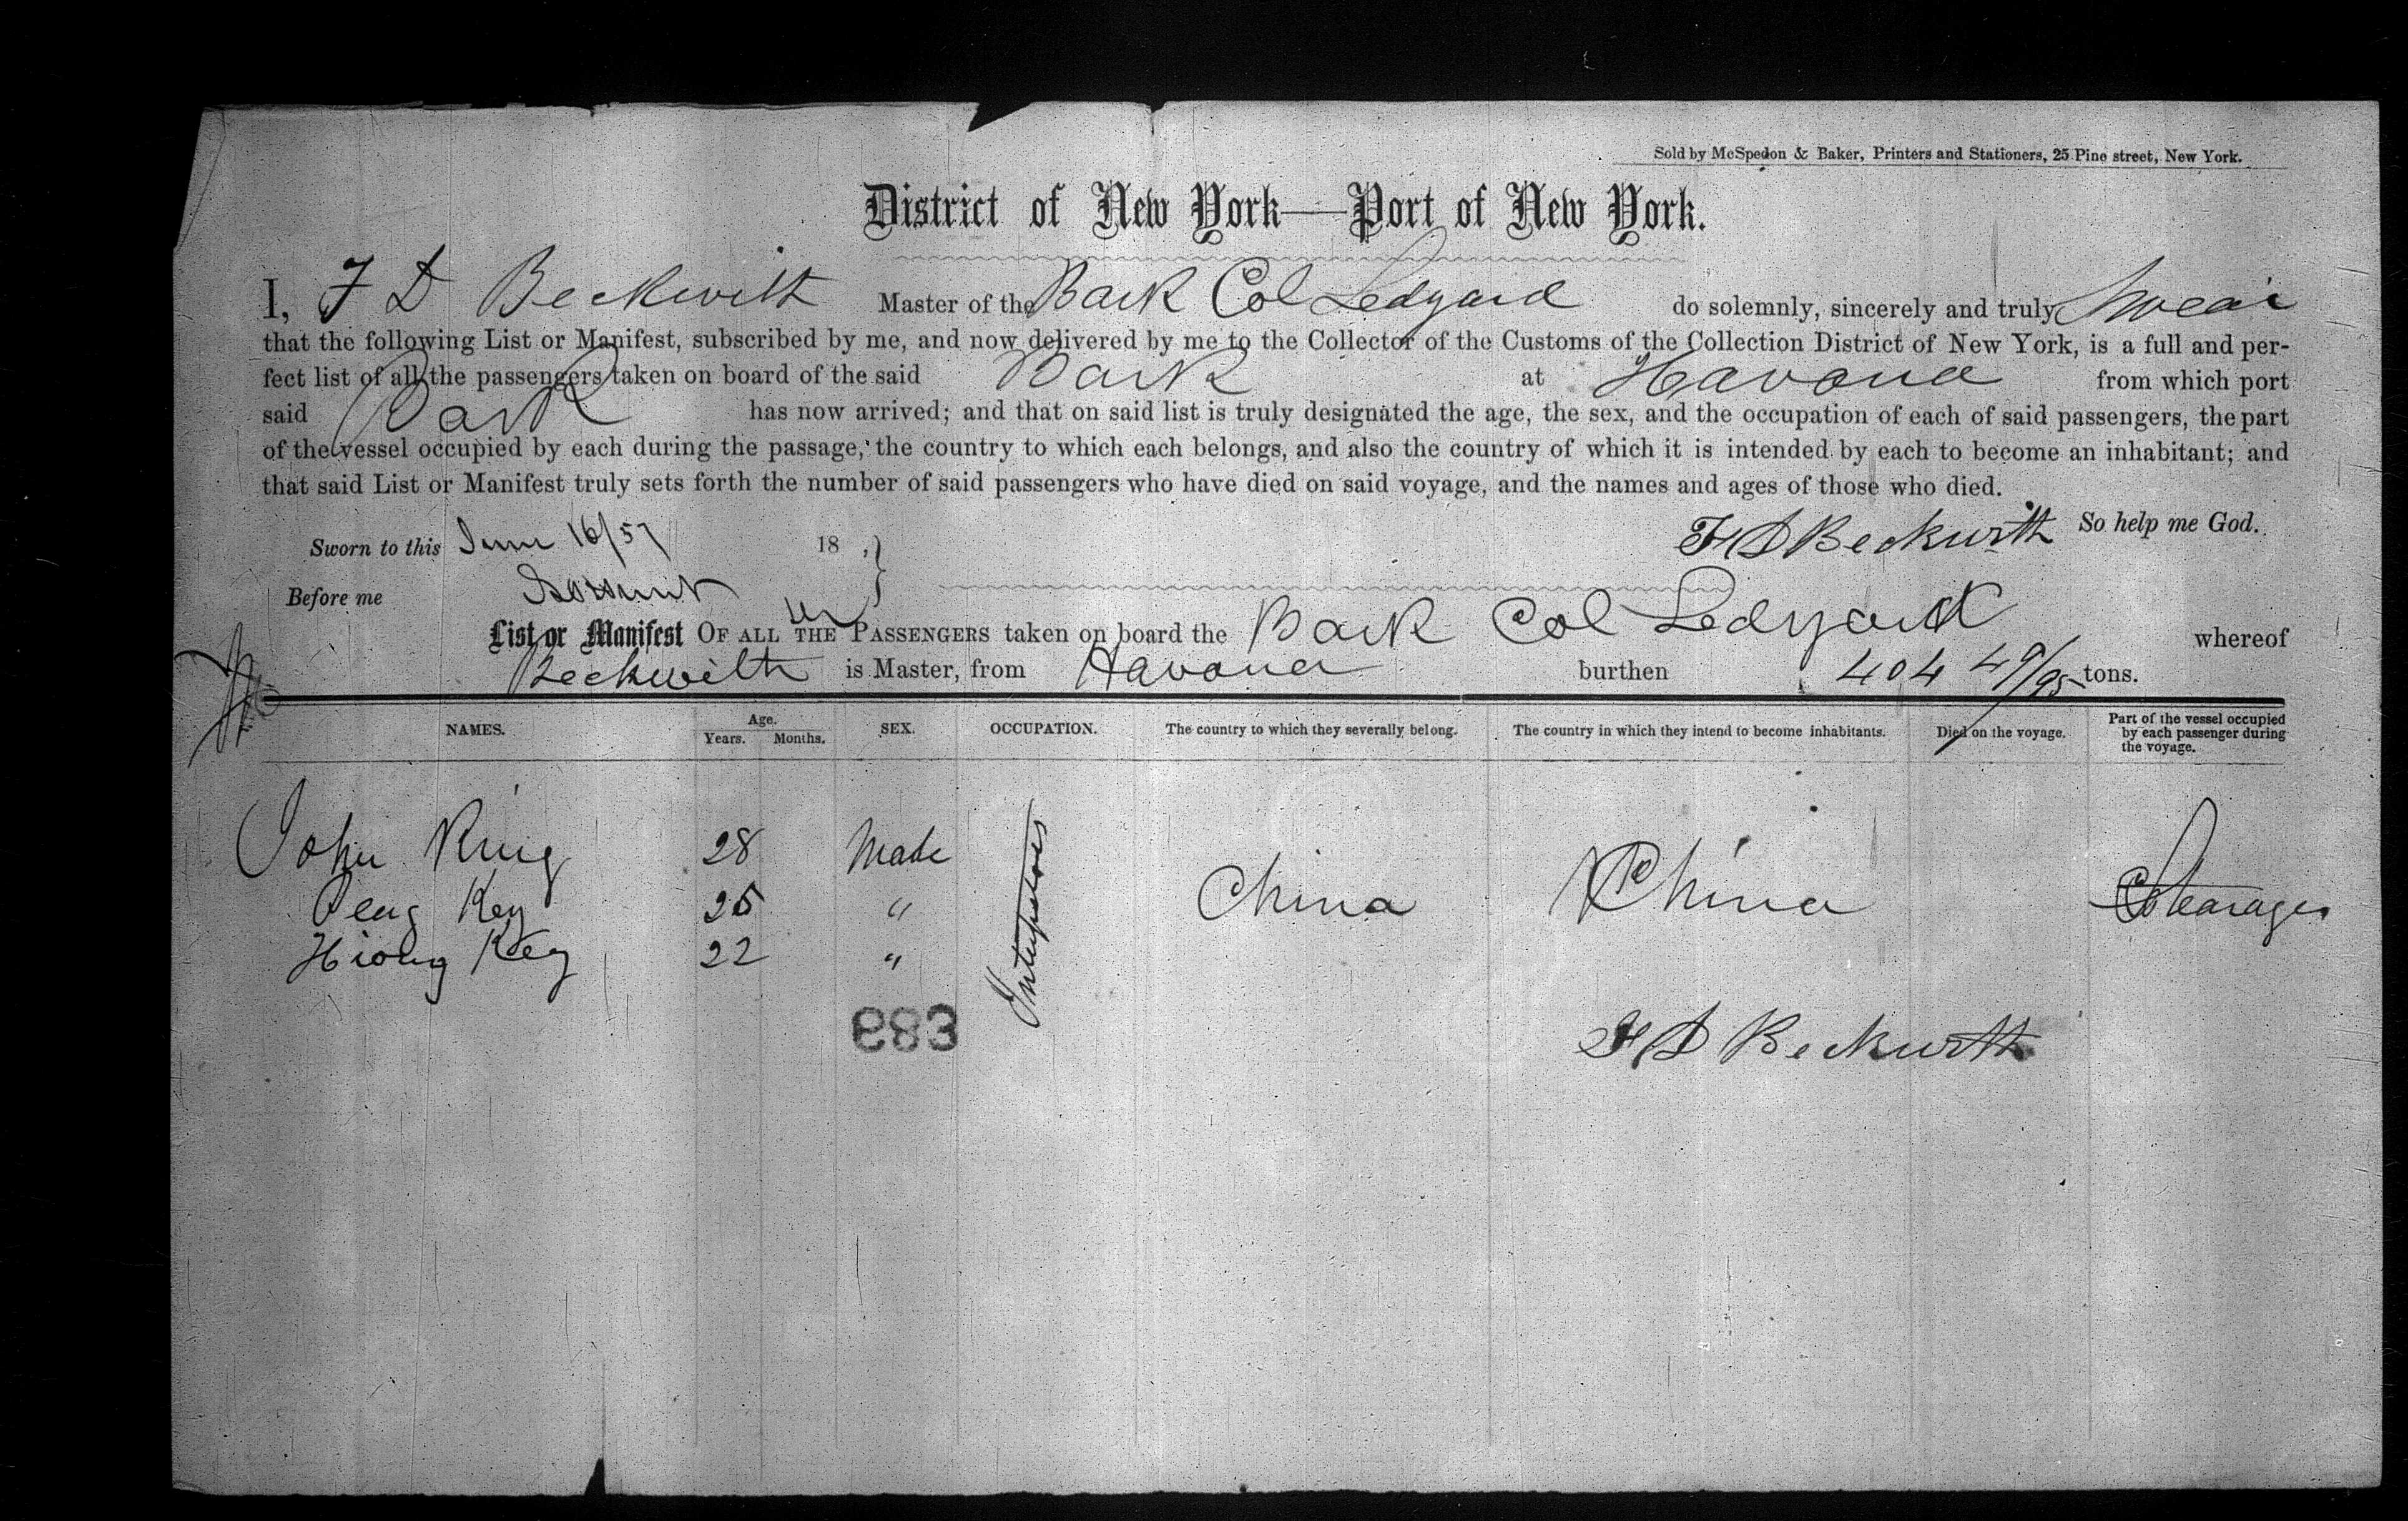 Sold by McSpedon & Baker, Printers and Stationers, 25 Pine street, New York.
District of New York—Port of New York.
I, F D Beckwith Master of the Bark Col Ledyard do solemnly, sincerely and truly Swear
that the following List or Manifest, subscribed by me, and now delivered by me to the Collector of the Customs of the Collection District of New York, is a full and per-
fect list of all the passengers taken on board of the said Bark at Havana from which port
said Bark has now arrived; and that on said list is truly designated the age, the sex, and the occupation of each of said passengers, the part
of the vessel occupied by each during the passage, the country to which each belongs, and also the country of which it is intended by each to become an inhabitant; and
that said List or Manifest truly sets forth the number of said passengers who have died on said voyage, and the names and ages of those who died.
So help me God.
F D Beckwith
Sworn to this June 16/57 18
Before me
List or Manifest OF ALL THE PASSENGERS taken on board the Bark Col Ledyard whereof
Beckwith is Master, from Havana burthen 404 49/95 tons.
NAMES. Age. Years. Months. SEX. OCCUPATION. The country to which they severally belong. The country in which they intend to become inhabitants. Died on the voyage. Part of the vessel occupied by each passenger during the voyage.
John King 28 Male
Peng Key 25 "
China China Stearages
Hiong Key 22 "
883
F D Beckwith